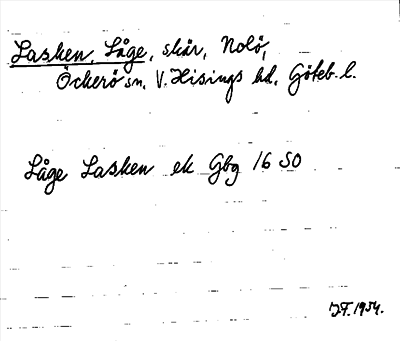 Lasken, Låge, skär, Nolö,
Öckerö sn, V. Hisings hd, Göteb. l.
Låge Lasken ek Gbg 16 SO
J.F. 1934.